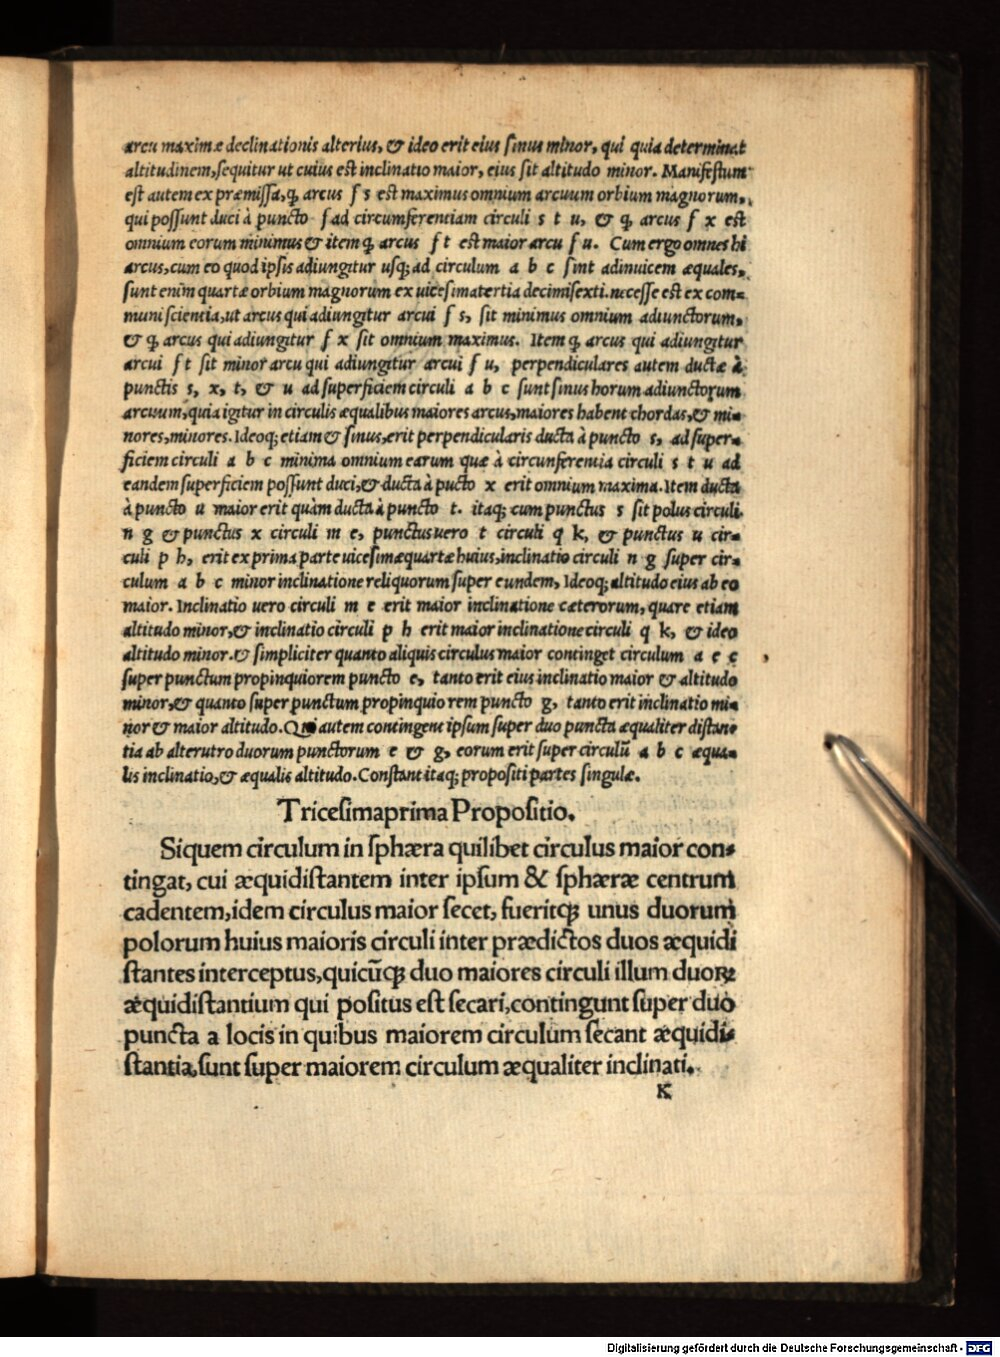 arcu maximæ declinationis alterius, & ideo erit eius ſinus minor, qui quia determinat
altitudinem, ſequitur ut cuius est inclinatio maior, eius ſit altitudo minor. Manifeſtum
eſt autem ex præmiſſa, ꝙ arcus f s eſt maximus omnium arcuum orbium magnorum,
qui poſſunt duci à puncto f ad circumferentiam circuli s t u, & ꝙ arcus f x eſt
omnium eorum minimus & item ꝙ arcus f t eſt maior arcu f u. Cum ergo omnes hi
arcus, cum eo quod ipſis adiungitur uſq; ad circulum a b c ſint adinuicem æquales,
ſunt enim quartæ orbium magnorum ex uiceſimatertia decimiſexti. neceſſe eſt ex com-
muni ſcientia, ut arcus qui adiungitur arcui f s, ſit minimus omnium adiunctorum,
& ꝙ arcus qui adiungitur f x ſit omnium maximus. Item ꝙ arcus qui adiungitur
arcui f t ſit minor arcu qui adiungitur arcui f u, perpendiculares autem ductæ à
punctis s, x, t, & u ad ſuperficiem circuli a b c ſunt ſinus horum adiunctorum
arcuum, quia igitur in circulis æqualibus maiores arcus, maiores habent chordas, & mi-
nores, minores. Ideoq; etiam & ſinus, erit perpendicularis ducta à puncto s, ad ſuper-
ficiem circuli a b c minima omnium earum quæ à circunferentia circuli s t u ad
eandem ſuperficiem poſſunt duci, & ducta à pūcto x erit omnium maxima. Item ducta
à puncto u maior erit quàm ducta à puncto t. itaq; cum punctus s ſit polus circuli
n g & punctus x circuli m e, punctus uero t circuli q k, & punctus u cir-
culi p h, erit ex prima parte uiceſimæquartæ huius, inclinatio circuli n g ſuper cir-
culum a b c minor inclinatione reliquorum ſuper eundem, Ideoq; altitudo eius ab eo
maior. Inclinatio uero circuli m e erit maior inclinatione cæterorum, quare etiam
altitudo minor, & inclinatio circuli p h erit maior inclinatione circuli q k, & ideo
altitudo minor. & ſimpliciter quanto aliquis circulus maior continget circulum a e c
ſuper punctum propinquiorem puncto e, tanto erit eius inclinatio maior & altitudo
minor, & quanto ſuper punctum propinquiorem puncto g, tanto erit inclinatio mi-
nor & maior altitudo. Qui autem contingent ipſum ſuper duo puncta æqualiter diſtan-
tia ab alterutro duorum punctorum e & g, eorum erit ſuper circulū a b c æqua-
lis inclinatio, & æqualis altitudo. Conſtant itaq; propoſiti partes ſingulæ.
Triceſimaprima Propoſitio.
Siquem circulum in ſphæra quilibet circulus maior con-
tingat, cui æquidiſtantem inter ipſum & ſphæræ centrum
cadentem, idem circulus maior ſecet, fueritꝗ unus duorum
polorum huius maioris circuli inter prædictos duos æquidi
ſtantes interceptus, quicūꝗ duo maiores circuli illum duoꝝ
æquidiſtantium qui poſitus eſt ſecari, contingunt ſuper duo
puncta a locis in quibus maiorem circulum ſecant æquidi-
ſtantia, ſunt ſuper maiorem circulum æqualiter inclinati.
K
Digitalisierung gefördert durch die Deutsche Forschungsgemeinschaft - DFG